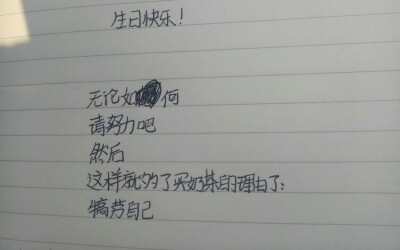 生日快乐！
无论如何
请努力吧
然后
这样就够了买奶茶的理由了：
犒劳自己